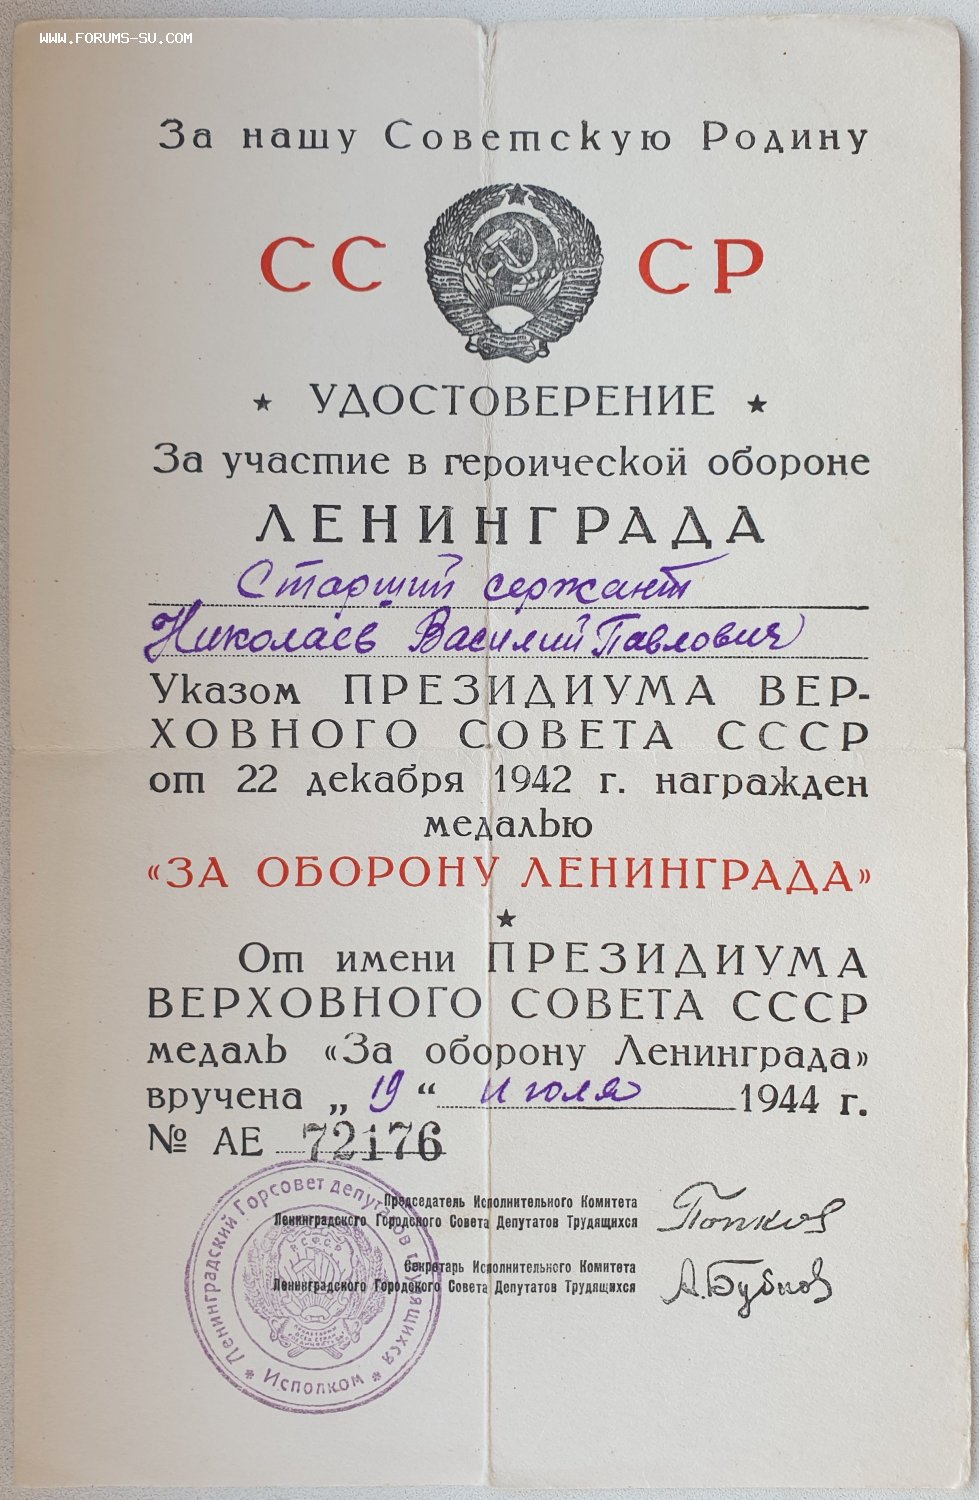 www.forums-su.com
За нашу Советскую Родину
СС СР
★ УДОСТОВЕРЕНИЕ ★
За участие в героической обороне
ЛЕНИНГРАДА
Старший сержант
Николаев Василий Павлович
Указом ПРЕЗИДИУМА ВЕР-
ХОВНОГО СОВЕТА СССР
от 22 декабря 1942 г. награжден
медалью
«ЗА ОБОРОНУ ЛЕНИНГРАДА»
★
От имени ПРЕЗИДИУМА
ВЕРХОВНОГО СОВЕТА СССР
медаль «За оборону Ленинграда»
вручена „ 19 “ июля 1944 г.
№ АЕ 72176
Председатель Исполнительного Комитета
Ленинградского Городского Совета Депутатов Трудящихся
Попков
Секретарь Исполнительного Комитета
Ленинградского Городского Совета Депутатов Трудящихся
А. Бубнов
Ленинградский Горсовет депутатов трудящихся
* Исполком *
РСФСР